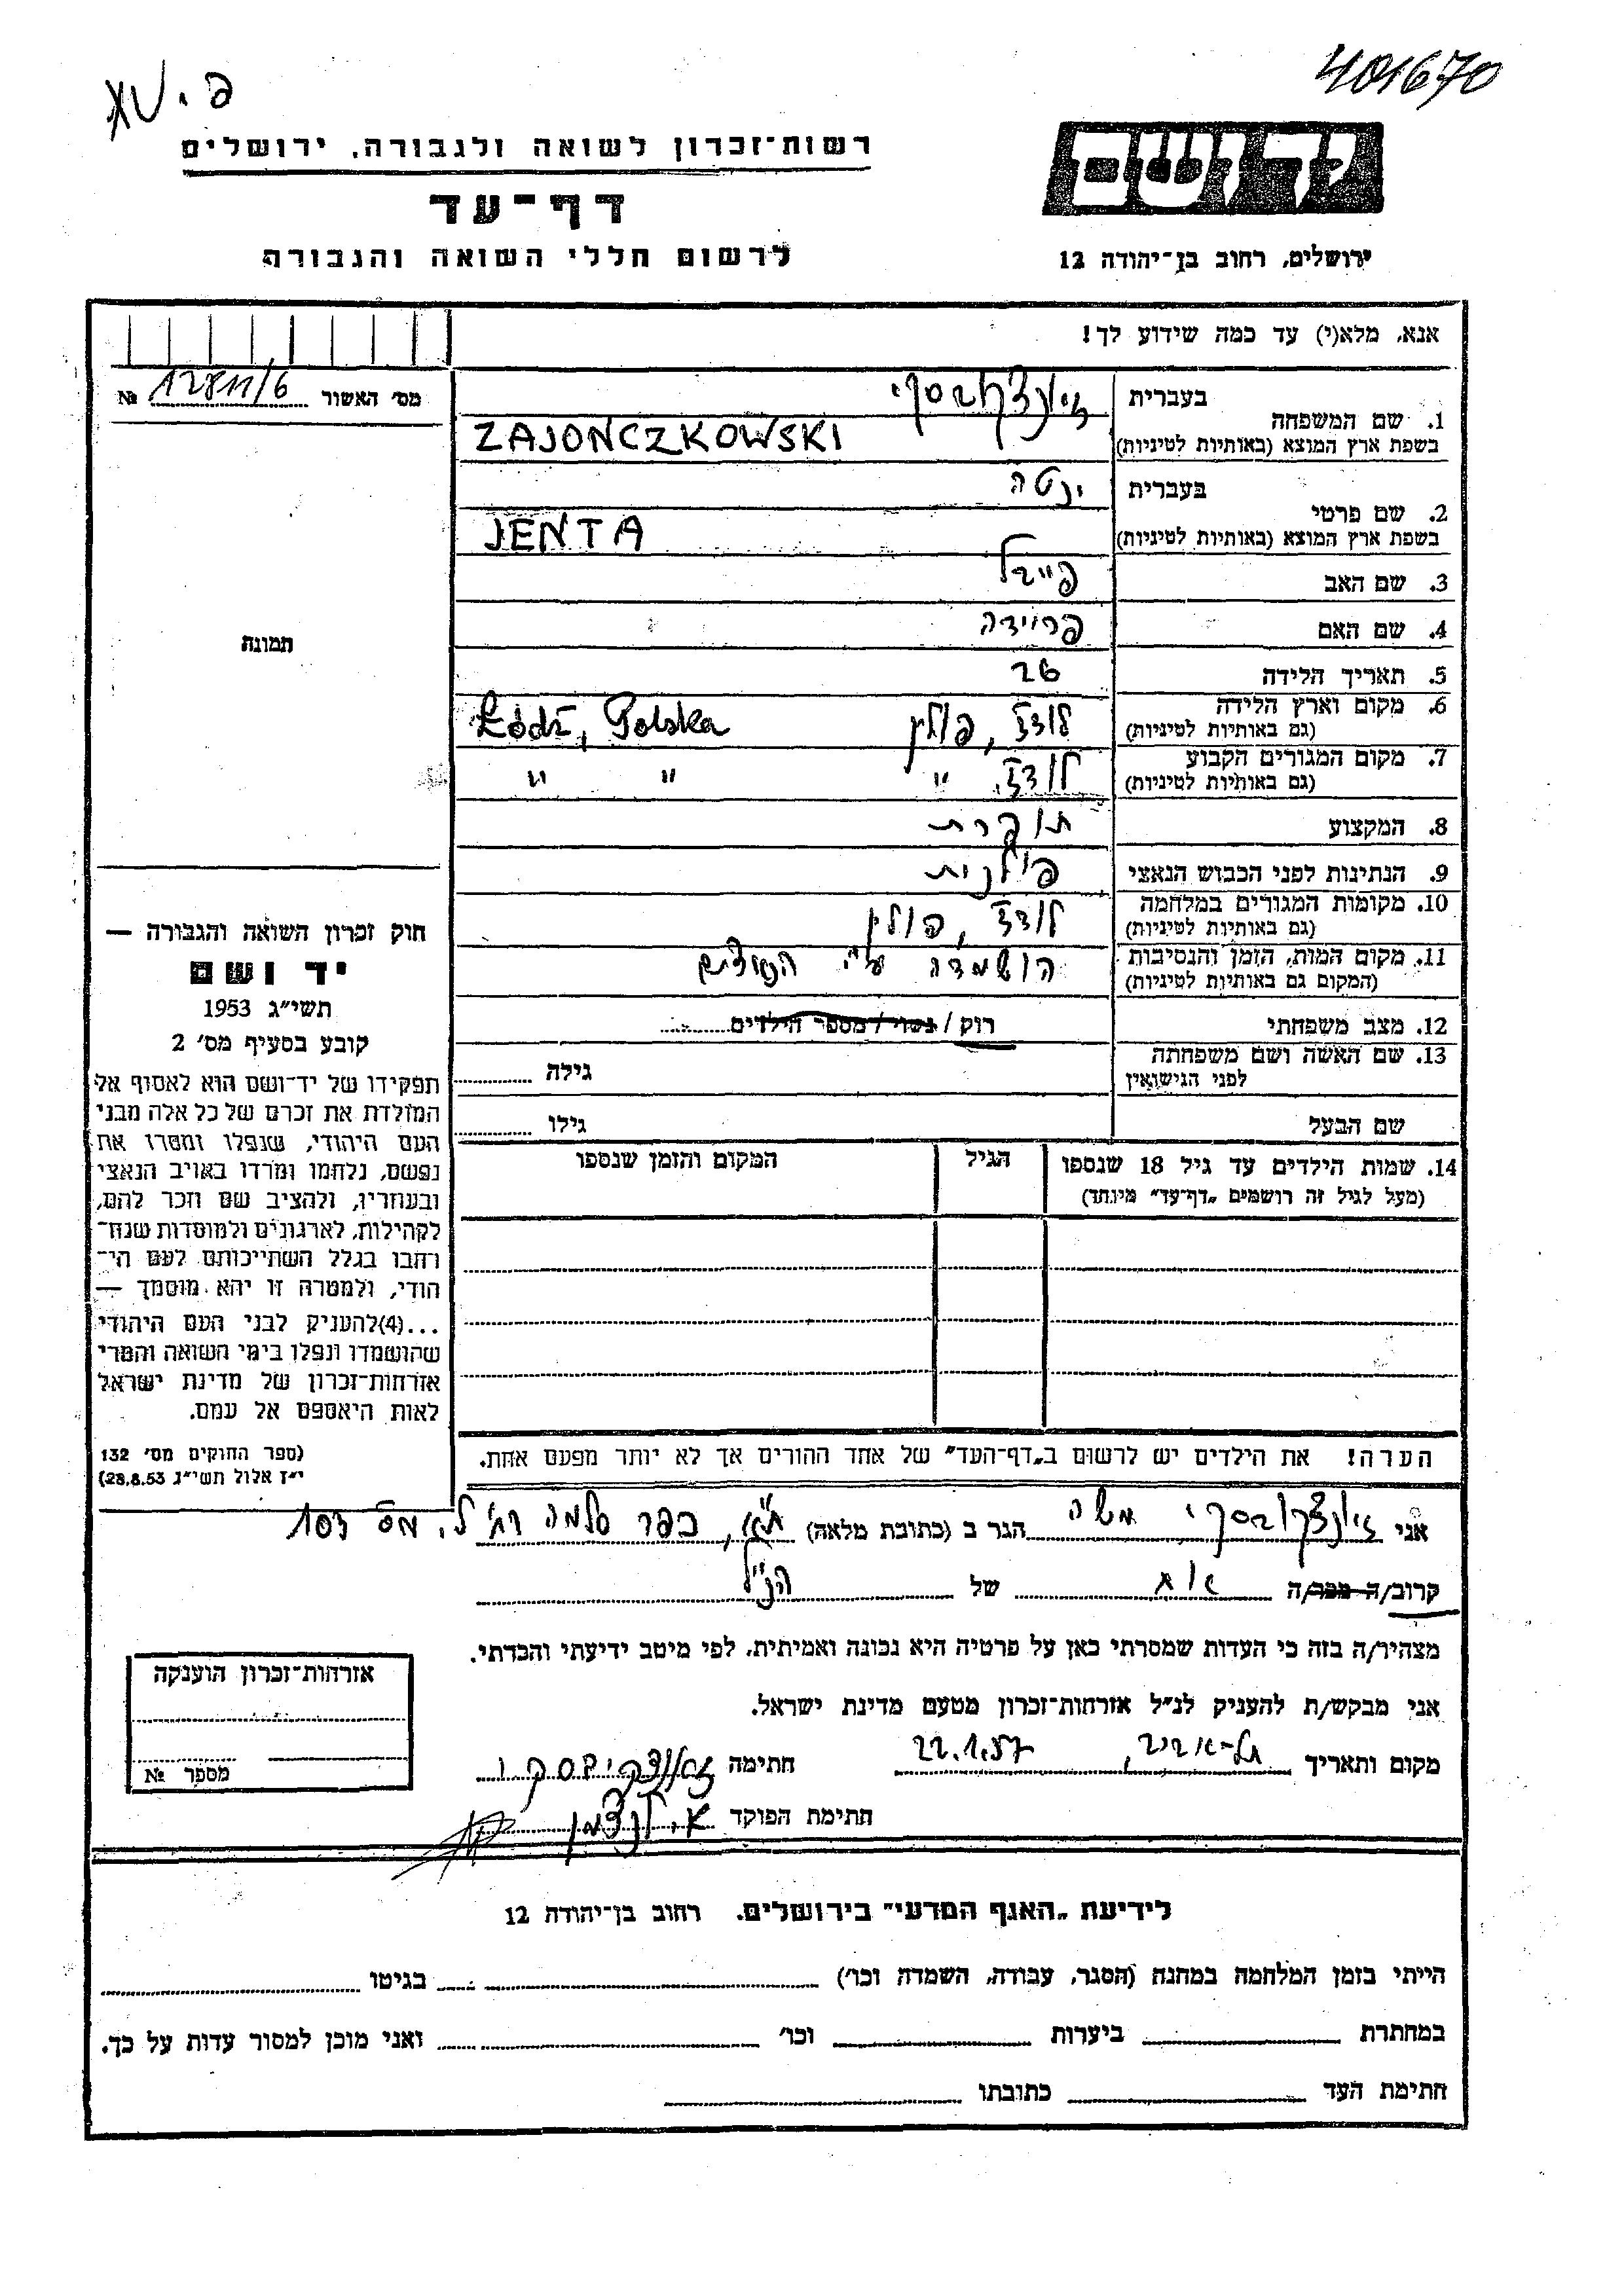 401670
רשות־זכרון לשואה ולגבורה, ירושלים
דף־עד
לרשום חללי השואה והגבורה
ירושלים, רחוב בן־יהודה 12
אנא, מלא(י) עד כמה שידוע לך!
מס׳ האשור № 12811/6
1. שם המשפחה
בעברית
בשפת ארץ המוצא (באותיות לטיניות) ZAJONCZKOWSKI
2. שם פרטי
בעברית ינטה
בשפת ארץ המוצא (באותיות לטיניות) JENTA
3. שם האב פייבל
4. שם האם פריידה
5. תאריך הלידה 26
6. מקום וארץ הלידה לודז, פולין Łódź, Polska
(גם באותיות לטיניות)
7. מקום המגורים הקבוע לודז " " "
(גם באותיות לטיניות)
8. המקצוע תופרת
9. הנתינות לפני הכבוש הנאצי פולנית
10. מקומות המגורים במלחמה לודז, פולין
(גם באותיות לטיניות)
11. מקום המות, הזמן והנסיבות הושמדה ע"י הנאצים
(המקום גם באותיות לטיניות)
12. מצב משפחתי רוק / נשוי / מספר הילדים
13. שם האשה ושם משפחתה גילה
לפני הנישואין
שם הבעל גילו
14. שמות הילדים עד גיל 18 שנספו הגיל המקום והזמן שנספו
(מעל לגיל זה רושמים „דף־עד״ מיוחד)
הערה! את הילדים יש לרשום ב„דף־העד״ של אחד ההורים אך לא יותר מפעם אחת.
תמונה
חוק זכרון השואה והגבורה —
יד ושם
תשי״ג 1953
קובע בסעיף מס׳ 2
תפקידו של יד־ושם הוא לאסוף אל
המולדת את זכרם של כל אלה מבני
העם היהודי, שנפלו ומסרו את
נפשם, נלחמו ומרדו באויב הנאצי
ובעוזריו, ולהציב שם וזכר להם,
לקהילות, לארגונים ולמוסדות שנח־
רבו בגלל השתייכותם לעם הי־
הודי, ולמטרה זו יהא מוסמך —
...(4)להעניק לבני העם היהודי
שהושמדו ונפלו בימי השואה והמרי
אזרחות־זכרון של מדינת ישראל
לאות היאספם אל עמם.
(ספר החוקים מס׳ 132
י״ז אלול תשי״ג 28.8.53)
אני משה הגר ב (כתובת מלאה) ת"א, כפר סלמה
קרוב/ה מכר/ה אח של הנ"ל
מצהיר/ה בזה כי העדות שמסרתי כאן על פרטיה היא נכונה ואמיתית, לפי מיטב ידיעתי והכרתי.
אני מבקש/ת להעניק לנ״ל אזרחות־זכרון מטעם מדינת ישראל.
מקום ותאריך תל-אביב, 22.1.57 חתימה
חתימת הפוקד
אזרחות־זכרון הוענקה
מספר №
לידיעת „האגף המדעי״ בירושלים. רחוב בן־יהודה 12
הייתי בזמן המלחמה במחנה (הסגר, עבודה, השמדה וכו׳) בגיטו
במחתרת ביערות וכו׳ ואני מוכן למסור עדות על כך.
חתימת העד כתובתו